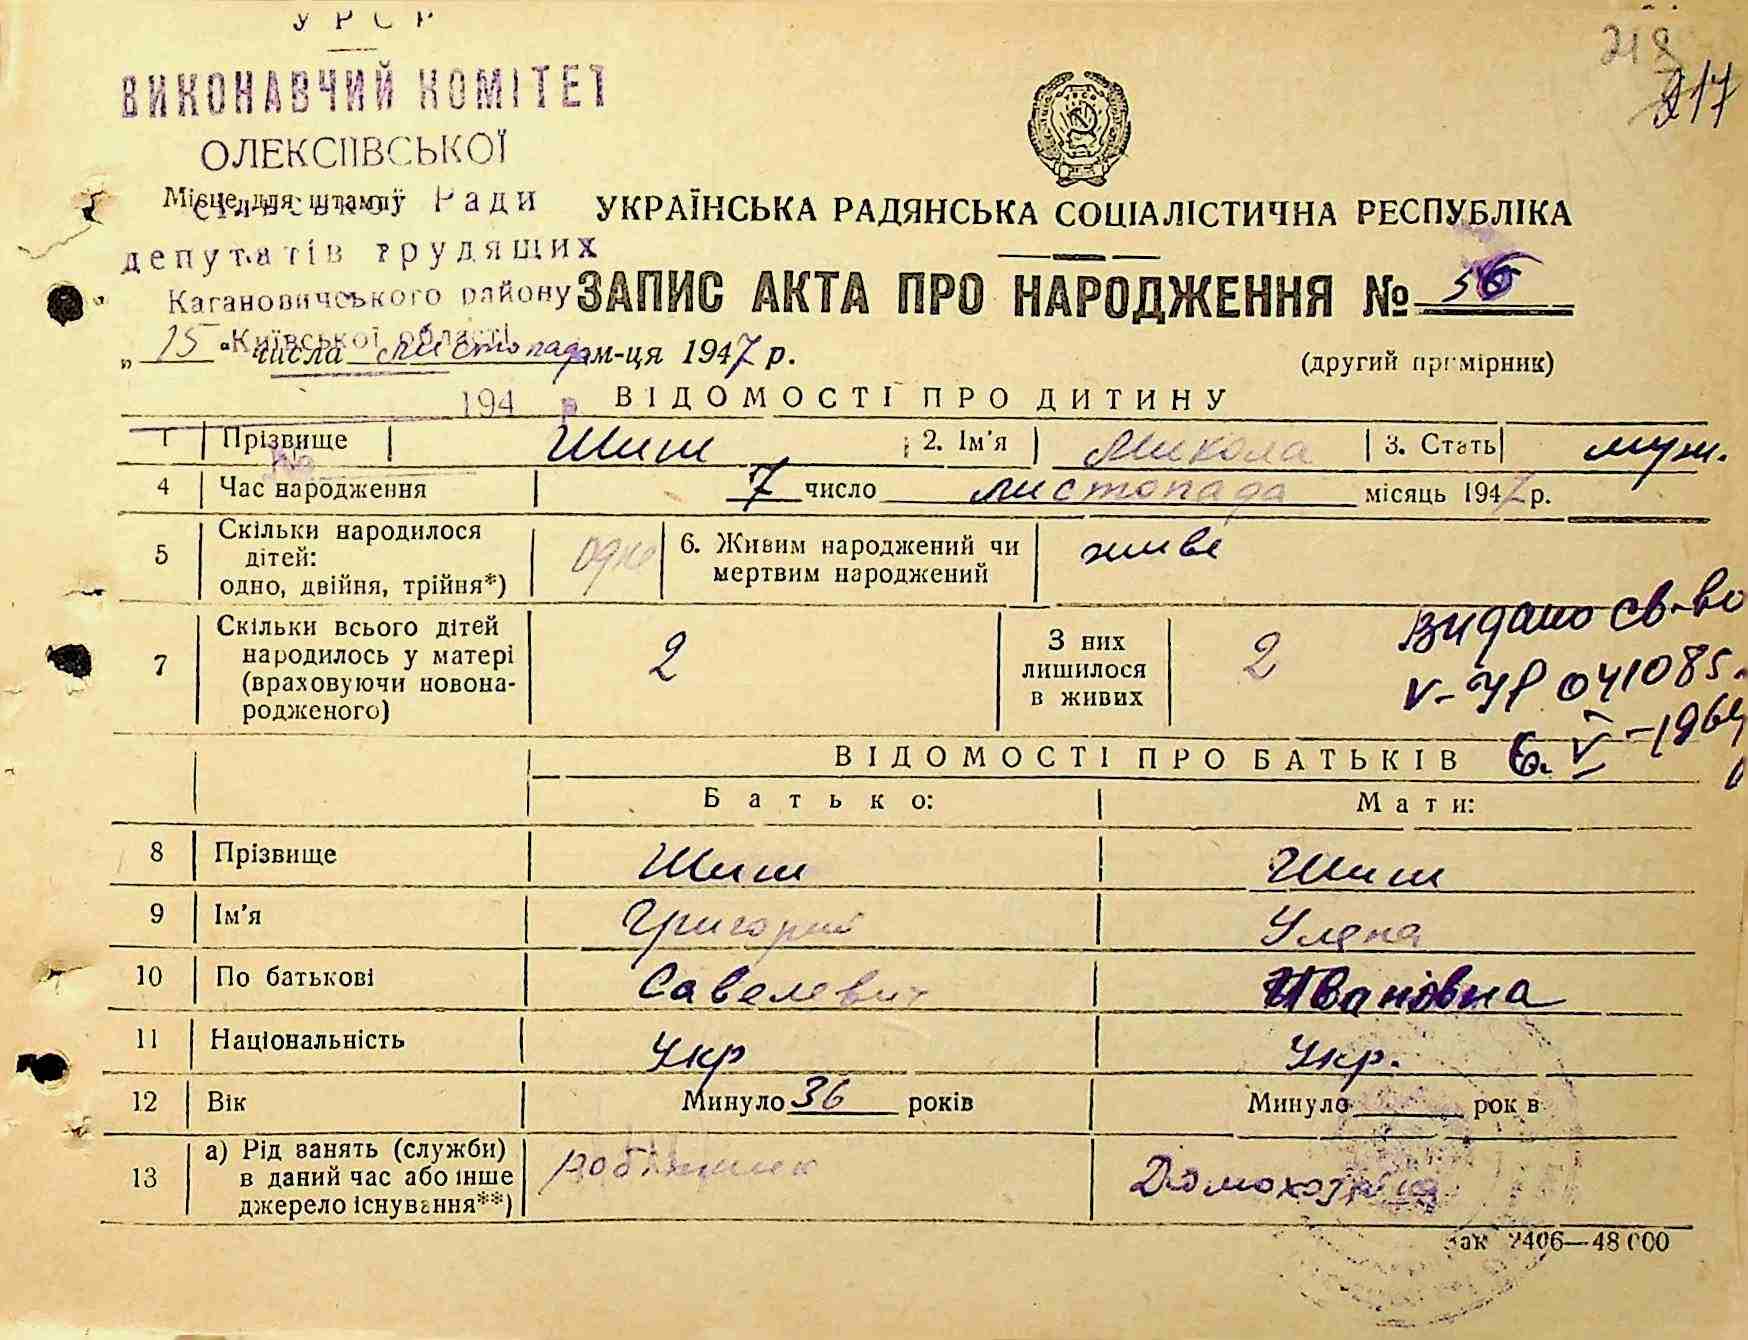 УРСР
ВИКОНАВЧИЙ КОМІТЕТ
ОЛЕКСІЇВСЬКОЇ
Місце для штампу
Ради
депутатів трудящих
Кагановичського району
Київської області
194 р
218
217
УКРАЇНСЬКА РАДЯНСЬКА СОЦІАЛІСТИЧНА РЕСПУБЛІКА
ЗАПИС АКТА ПРО НАРОДЖЕННЯ № 56
„ 15 " числа листопада м-ця 1947 р.
(другий примірник)
ВІДОМОСТІ ПРО ДИТИНУ
1 Прізвище Шиш 2. Ім'я Микола 3. Стать муж.
4 Час народження 7 число листопада місяць 1947 р.
5 Скільки народилося дітей: одно, двійня, трійня*) одно 6. Живим народжений чи мертвим народжений живе
7 Скільки всього дітей народилось у матері (враховуючи новонародженого) 2 З них лишилося в живих 2
Видано св-во
V-УР 041085.
6. V-1964
ВІДОМОСТІ ПРО БАТЬКІВ
Батько: Мати:
8 Прізвище Шиш Шиш
9 Ім'я Григорий Уляна
10 По батькові Савелевич Ивановна
11 Національність Укр Укр.
12 Вік Минуло 36 років Минуло років
13 а) Рід занять (служби) в даний час або інше джерело існування**) робітник Домохозяйка
Зак 2406—48 000